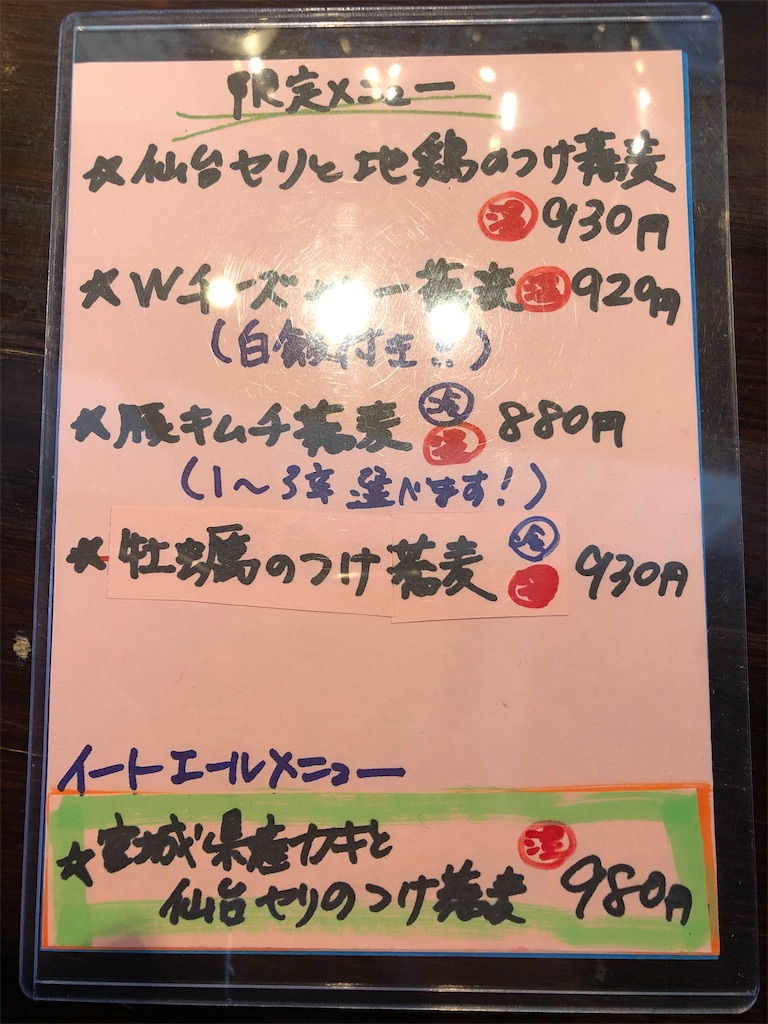 限定メニュー
☆仙台セリと地鶏のつけ蕎麦
温 930円
☆Wチーズカレー蕎麦 温 920円
(白飯付き!!)
☆豚キムチ蕎麦 冷 温 880円
(1〜3辛 選べます!)
☆牡蠣のつけ蕎麦 冷 930円
イートエールメニュー
☆宮城県産カキと 温
仙台セリのつけ蕎麦 980円